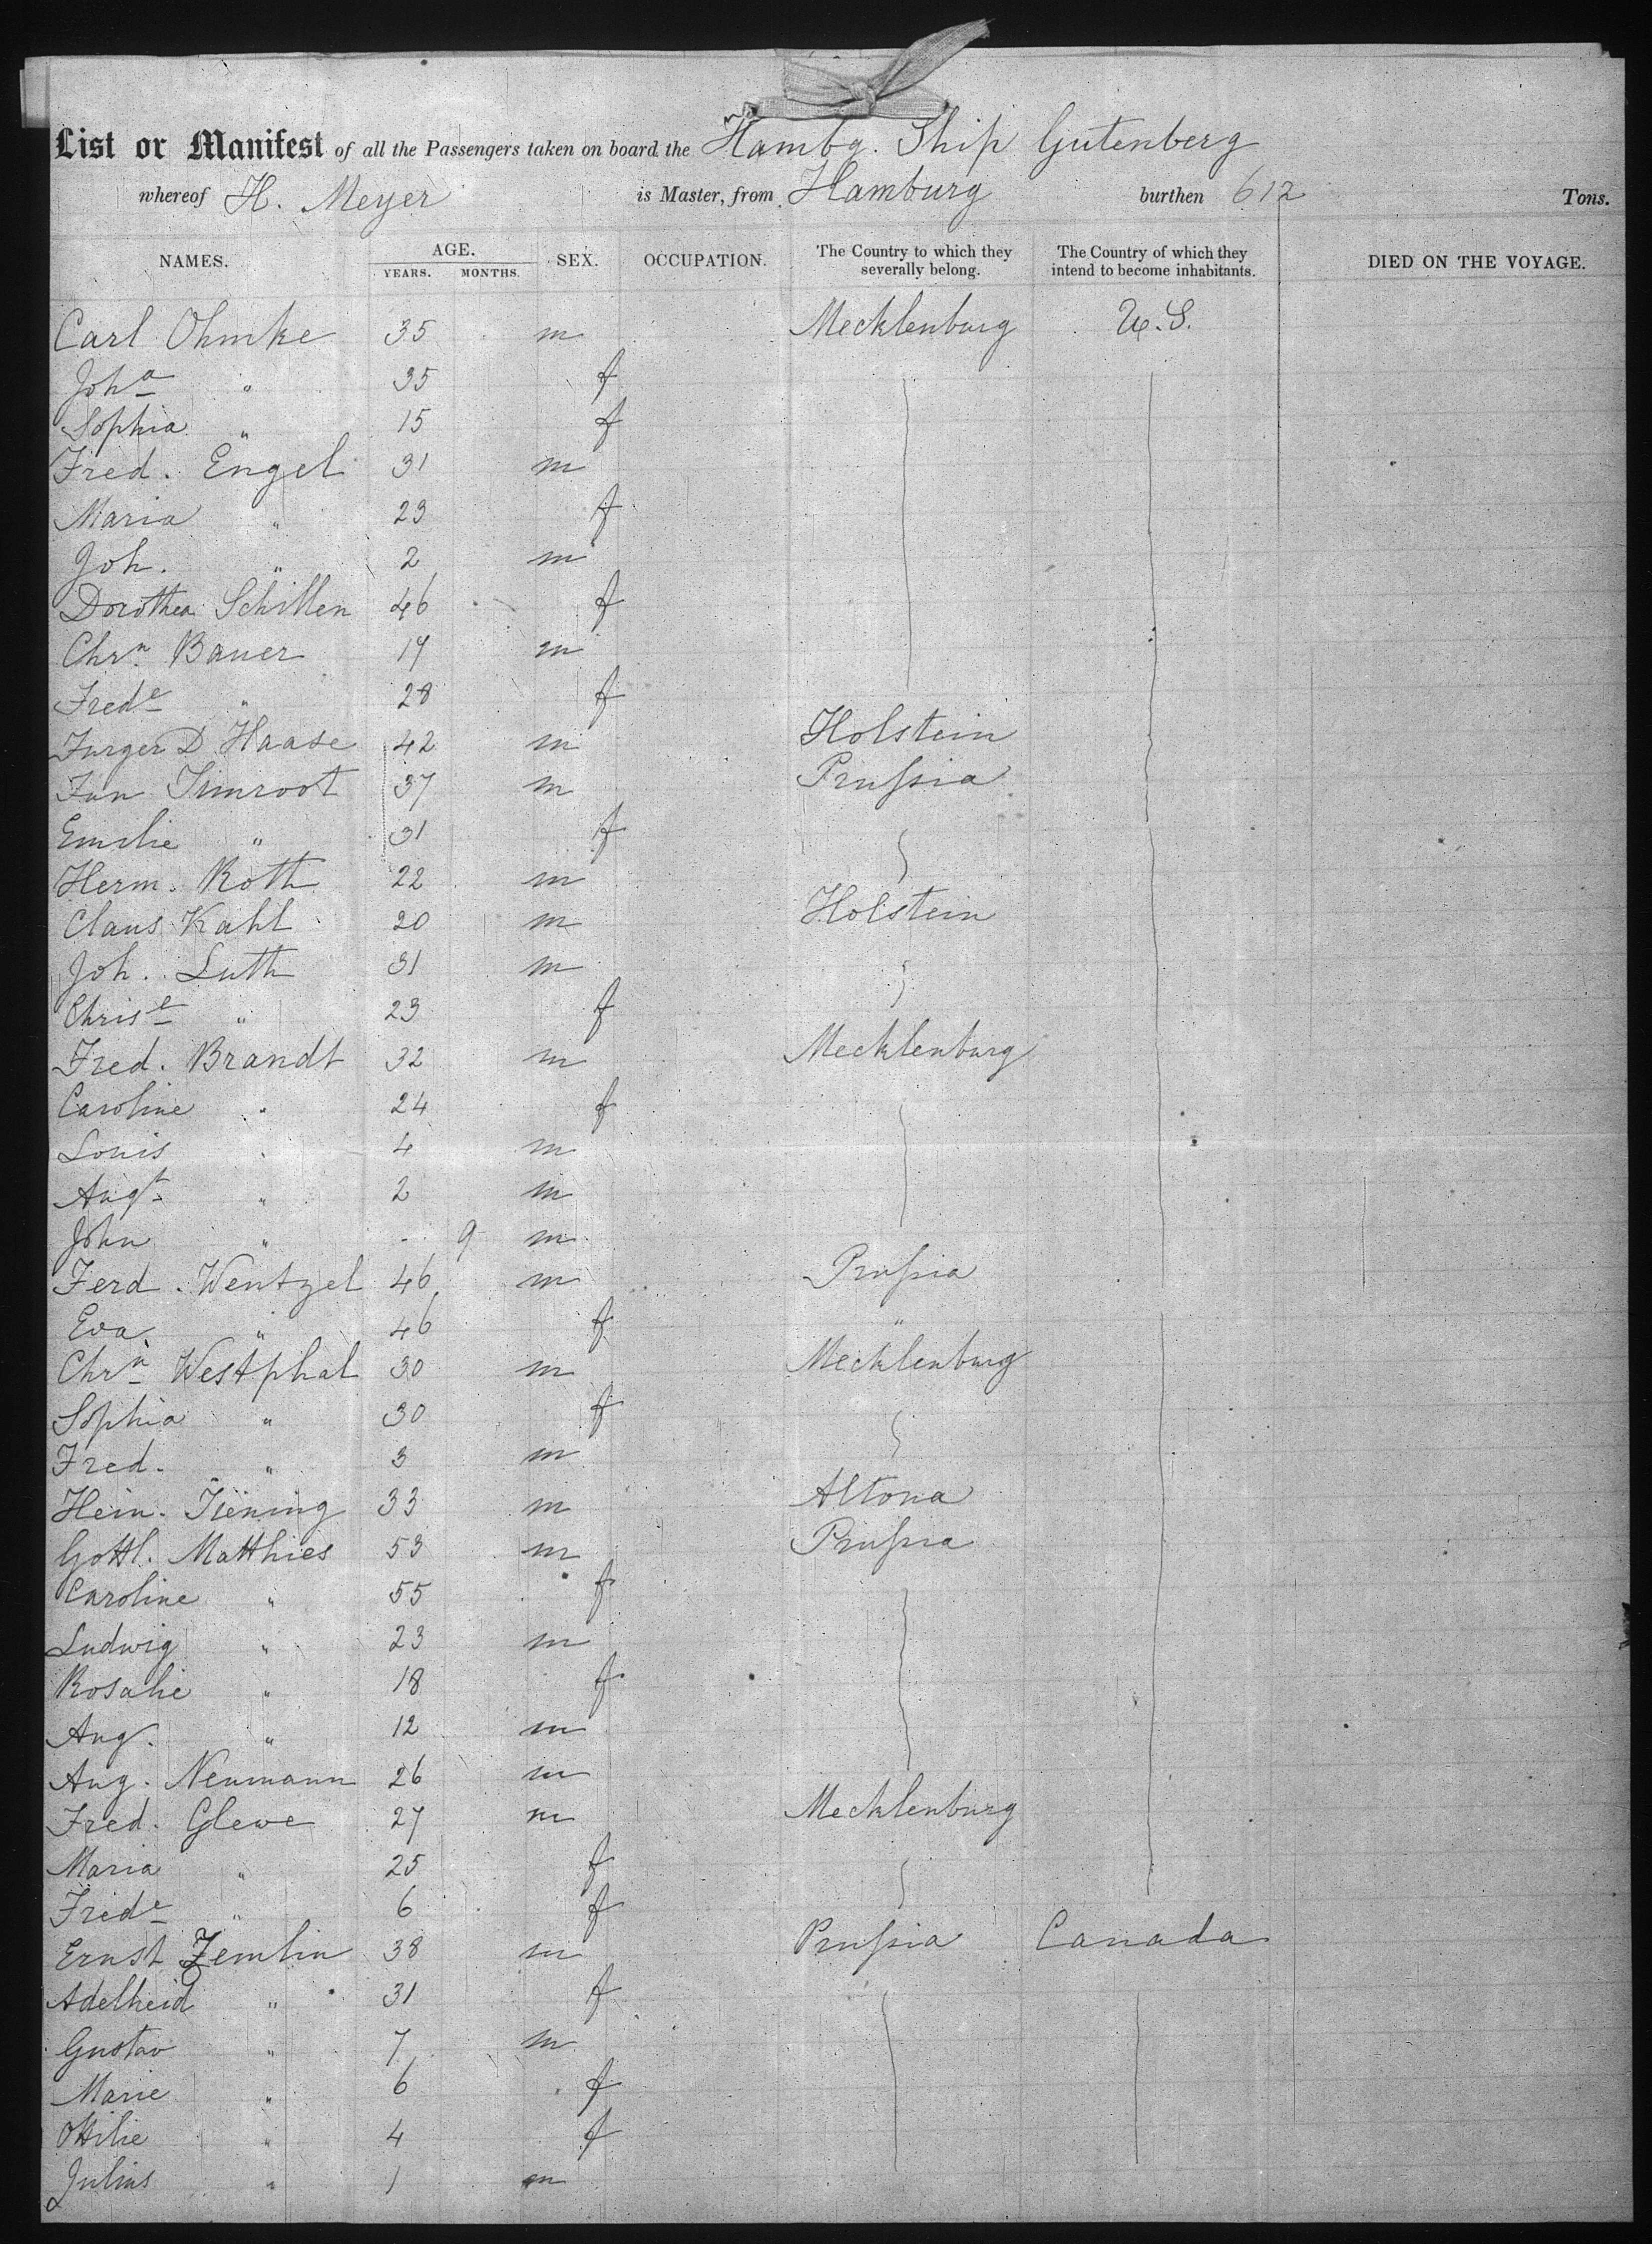 List or Manifest of all the Passengers taken on board the Hambg. Ship Gutenberg
whereof H. Meyer is Master, from Hamburg burthen 612 Tons.
NAMES. AGE. YEARS. MONTHS. SEX. OCCUPATION. The Country to which they severally belong. The Country of which they intend to become inhabitants. DIED ON THE VOYAGE.
Carl Ohmke 35 m Mecklenburg U.S.
Joha " 35 f
Sophia " 15 f
Fred. Engel 31 m
Maria " 23 f
Joh. " 2 m
Dorothea Schillen 46 f
Chrn. Bauer 17 m
Frede " 28 f
Jurgen D Haase 42 m Holstein
Timroot 37 m Prussia
Emilie " 31 f
Herm. Roth 22 m
Claus Kahl 20 m Holstein
Joh. Luth 31 m
Chrise " 23 f
Fred. Brandt 32 m Mecklenburg
Caroline " 24 f
Louis " 4 m
Augt " 2 m
John " - 9 m
Ferd. Wentzel 46 m Prussia
Eva " 46 f "
Chrn Westphal 30 m Mecklenburg
Sophia " 30 f
Fred. " 3 m
Hein. Tiening 33 m Altona
Gottl. Matthies 53 m Prussia
Caroline " 55 f
Ludwig " 23 m
Rosalie " 18 f
Aug. " 12 m
Aug. Neumann 26 m
Fred. Glewe 27 m Mecklenburg
Maria " 25 f
Fride " 6 f
Ernst Zemlin 38 m Prussia Canada
Adelheid " 31 f
Gustav " 7 m
Marie " 6 f
Ottilie " 4 f
Julius " 1 m